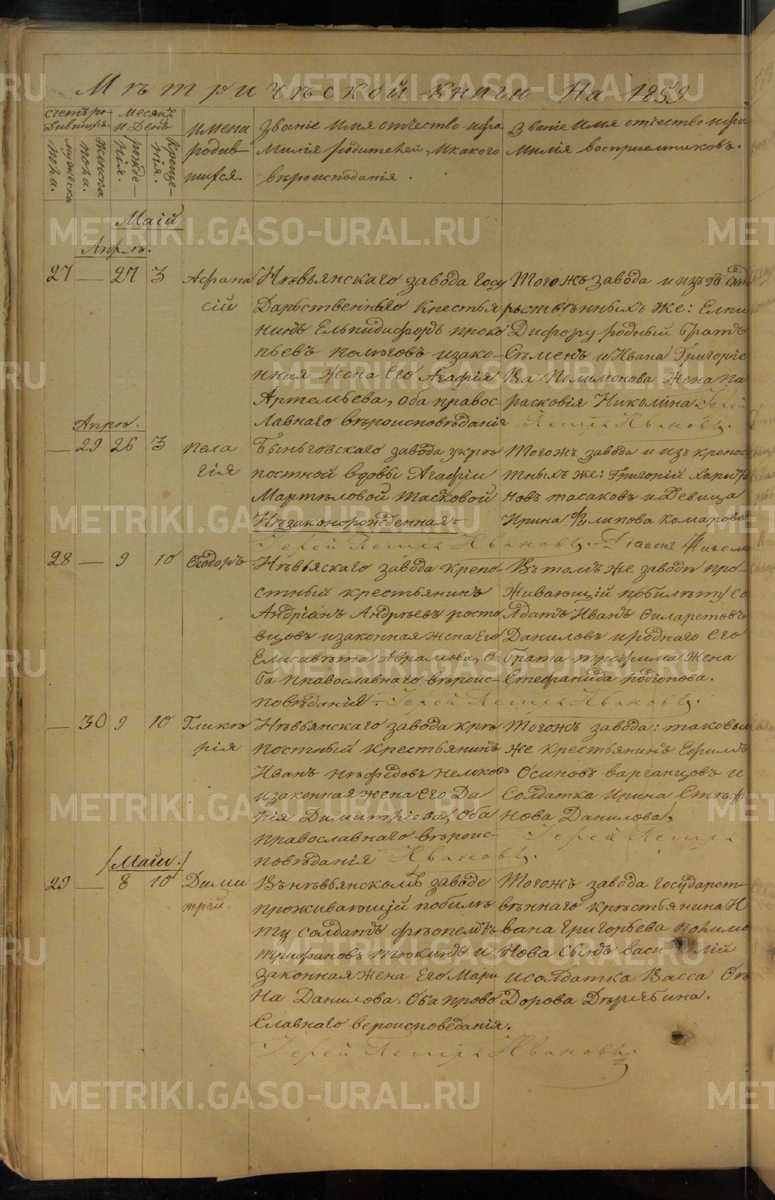 Мѣтрической книги На 1859
счетъ родившихъ. Мужеска пола. женска пола.
Месяцъ и День рожденія. Крещенія.
Имена родившихся.
Званіе Имя отчество и фамилія родителей, и какого вѣроисповданія.
Званіе Имя отчество и фамилія восприемниковъ.
Маій
Апрѣ.
27 — 27 3 Афанасій
Нѣвьянскаго завода Госу
Дарьственнаго крестья
нинъ Ельпидифоръ проко
пьевъ и зако-
нная жена Его Агафія
Артемьева, оба правос-
лавнаго вѣроисповѣданія
Тогожъ завода и изъ
же: Елпи
Дифору родный братъ
Сѣменъ и Ивана Григорье
Жена Па
расковія Николина.
Іерей Петръ Ивановъ.
Апрѣ.
— 29 26 3 Пелагія
Быньговскаго завода
постной вдовы Агафіи
Мартѣловой
Незаконорожденная —
Тогожъ завода и изъ крепос
тныхъ же: Григорій
и Девица
Ирина Филипова Комарова
Іерей Петръ Ивановъ.
28 — 9 10 Феодоръ
Нѣвьяскаго завода крепо-
стный крестьянинъ
Андріанъ Андрѣевъ росто
вцовъ и законная жена Его
Елисавѣта Аврамова, О
ба православнаго вѣроис-
повѣданія —
Въ томъ же заводѣ про-
живающій по билѣту Со
лдатъ Иванъ Филаретовъ
Даниловъ и роднаго Его
Брата трофима жена
Стефанида родіонова.
Іерей Петръ Ивановъ.
— 30 9 10 Гликѣрія
Нѣвьянскаго завода крѣ
постный крестьянинъ
Иванъ
и законная жена Его Да
рія Димитріева, Оба
православнаго вѣроис-
повѣданія
Тогожъ завода: таковый
же крестьянинъ Ефимъ
Осиповъ варганцовъ и
Солдатка Ирина
нова Данилова.
Іерей Петръ
Ивановъ.
(Маіи.)
29 — 8 10 Димитрій
Въ нѣвьянскомъ заводе
проживающій по билѣ
ту солдатъ
и
законная жена Его Мари
на Данилова. Оба право
славнаго вероисповеданія.
Тогожъ завода Государст-
вѣннаго крѣстьянина И
вана Григорьева
нова Сынъ василій
и солдатка Васса Фе
дорова Дѣрябина.
Іерей Петръ Ивановъ.
METRIKI.GASO-URAL.RU